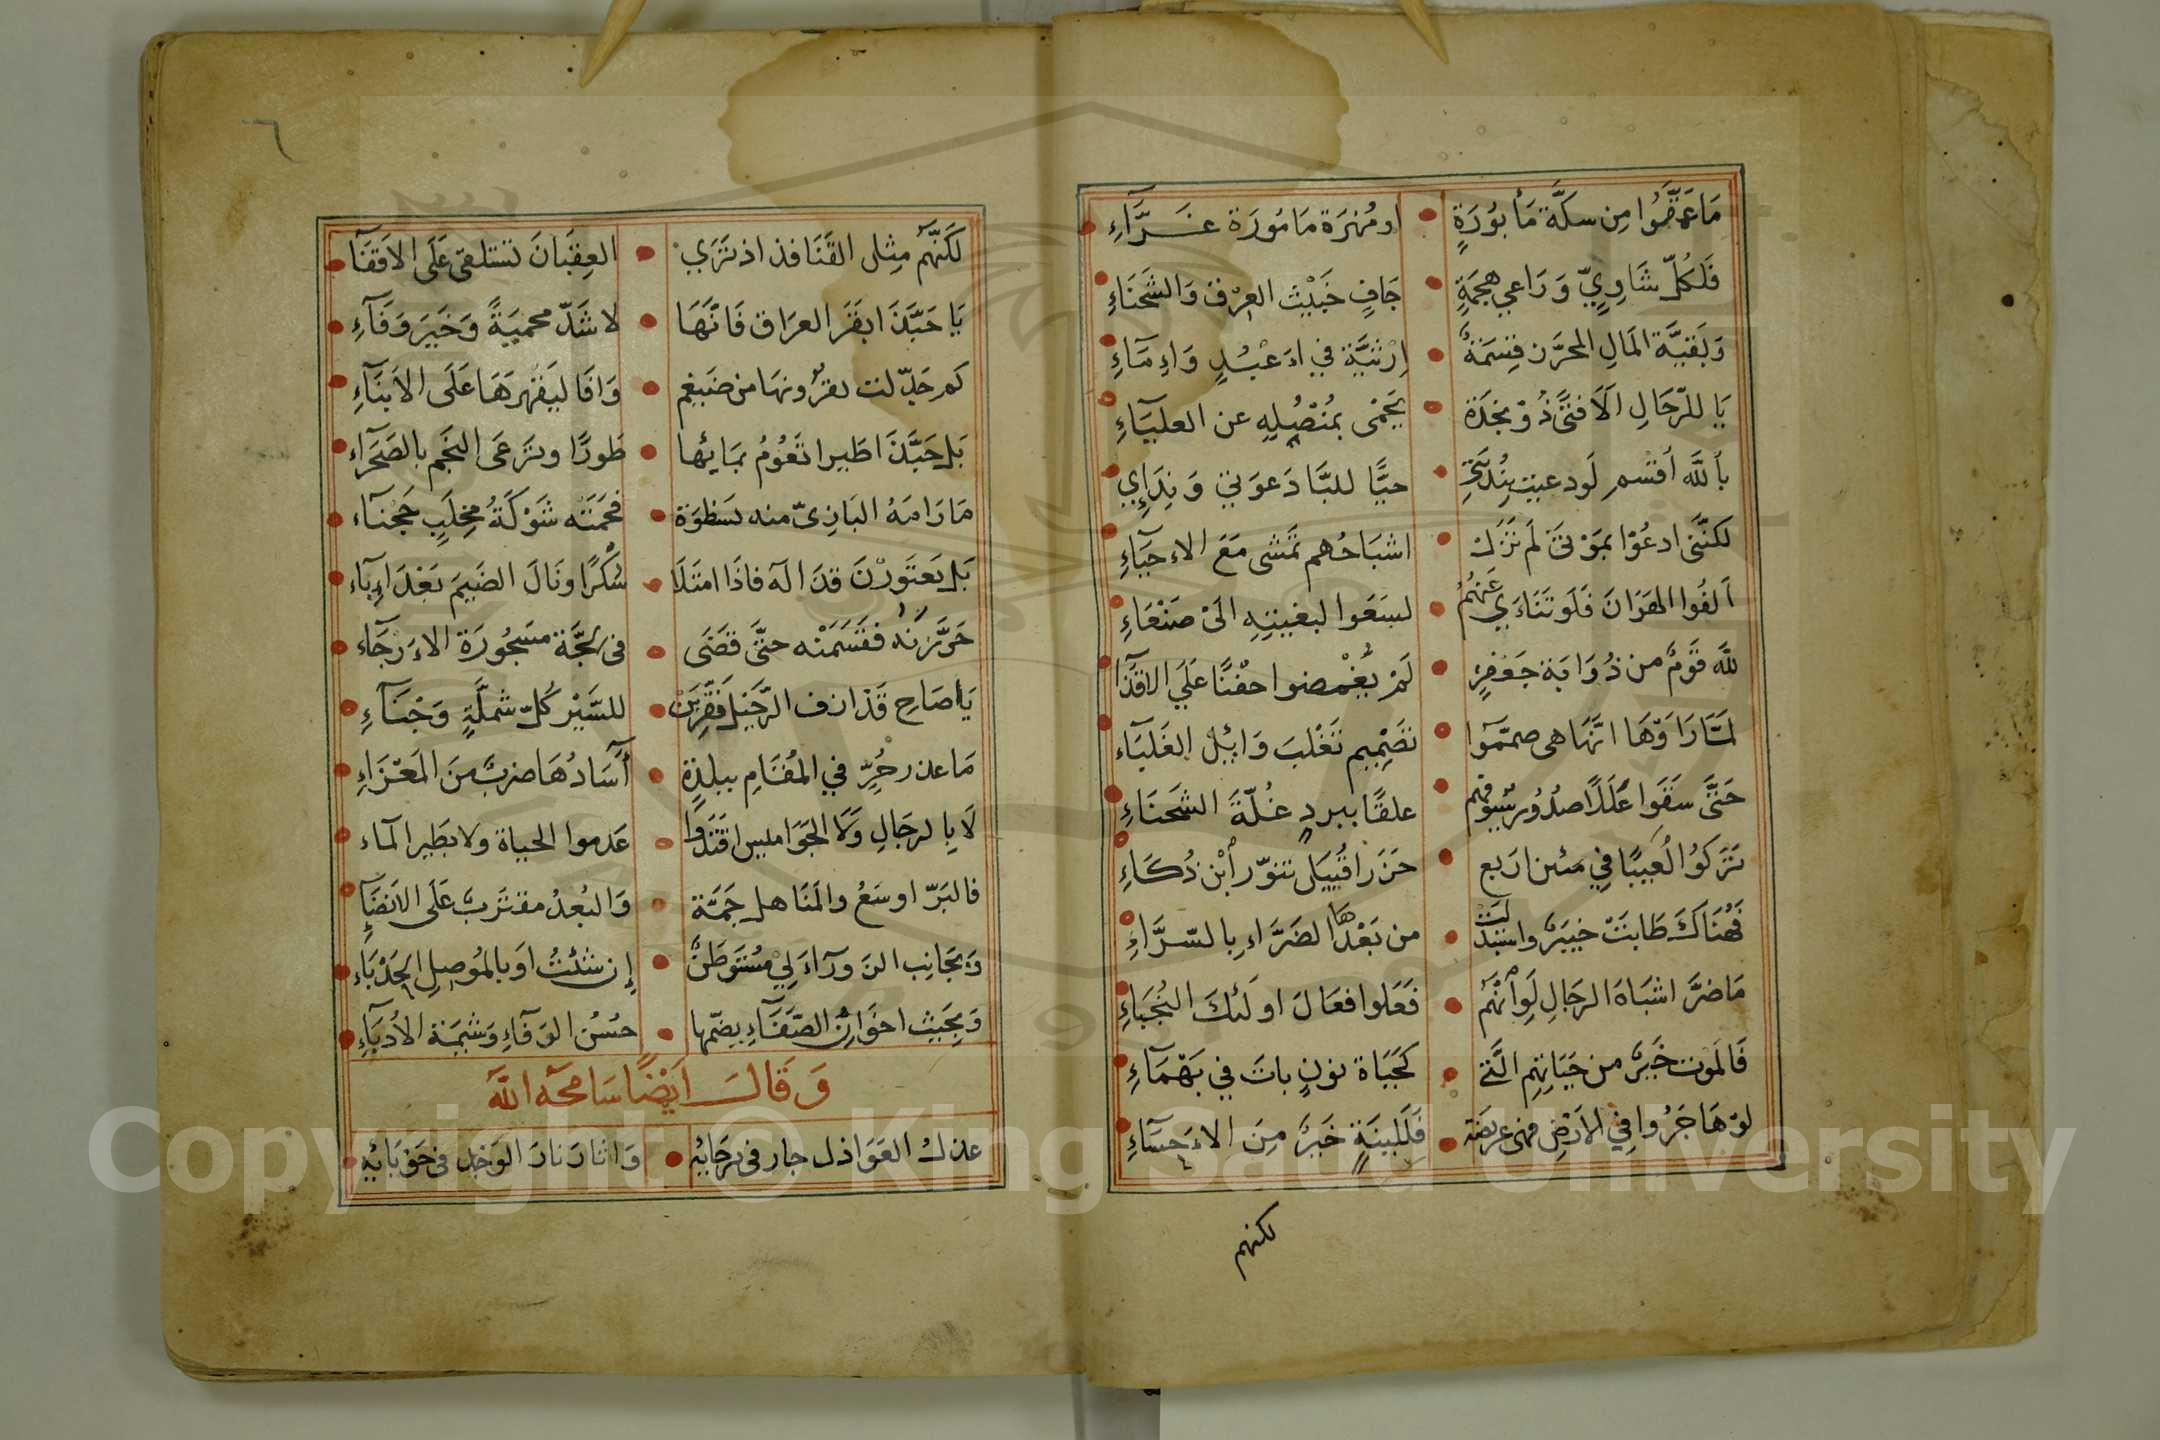 مَا عَوَّضُوا مِن سكَّة مَأْبُورَةٍ ● او مُهرَة مَامُورَة غَرَّاءِ
فَلكُلّ شَاوِيٍّ وَرَاعي هجمَةٍ ● جَافٍ خَبيْث العِرْق وَالشَّحنَاءِ
وَبَقيَّة المَالِ المحرَّز قِسمَة ● اِرْثيَّة في اَعْبُدٍ وَاِمَآءِ
يَا للرّجَالِ اَلَا فتًى ذُوْ نجدَة ● يَحْمى بمُنْصُلِهِ عن العليَآءِ
باللَّه اُقسم لَودعيت
لكنَّنى ادعُوْا بمَوْتىَ لَم تَزَل ● اشبَاحُهم تَمشى مَعَ الاحيَآءِ
اَلفُوا الهَوَانَ فَلَوتَنَاءَي عَنهُمُ ● لسَعَوا لبغيتِهِ الىْ صَنْعَاءِ
للَّه قَومٌ من ذُوَابَة جَعفَرٍ ● لَمْ يُغْمضوا جفْنًا عَلَي الاقذَآ
لمَّا رَاَوهَا انَّهَا هى صمَّموا ● تَصْمِيم تَغْلبَ وَائلِ الغَلبَاء
حَتَّى سَقَوا عَلَلًا صدُور سيُوفهم ● علقًا ببردٍ غُلَّةَ الشحنَاءِ
تَرَكوُا لُعَيبًا فِي مئين اربَع ● حَزَرا قُبيَل تنوّر ابْن ذُكَاءِ
فَهُنَاكَ طَابَتْ خيبَرٌ واستبدلت ● من بَعْدهَا الضرَّاءِ بالسّرَّاءِ
مَا ضرَّ اشبَاهَ الرجَالِ لَوانهُم ● فَعَلوا فعَالَ اولَئكَ النُجبَاءِ
فَالَموت خَيرٌ من حَيَاتهِم الَّتى ● كحَيَاة نونٍ باتَ في يَهْمَآءِ
جَرُوا فِي الاَرْضِ فهى عريضَة ● خَبرٌ مِنَ الاحسَآءِ
لكنهم
٦
لَكنَّهم مِثل القَنَافذ اذ تَرَي ● العِقبَانَ تستلقى عَلَى الاقفَآ
يَا حَبَّذَ ابقَر العرَاق فَانَّهَا ● لا شَدّ محميَةً وَخَيرَ وَفَآءِ
كم من ضَيغم ● وَافَا ليَقهرَهَا عَلَى الابنَآءِ
بَل حَبَّذَ اطَيرا تَعُومُ بمَائها ● طَورًا وترعَى النَجم بالصَحرَاءِ
مَا رَامَهُ البَازِىّ منه بسَطوَة ● فحَمَتْه شَوكَةُ مِخلَبٍ حَجنَاء
بَل يَعتَورْنَ قذَالَه فاذَا امتَلَا ● سُكْرًا ونَالَ الضَيمَ بَعْدَ اِبآء
حَرَّزنَهُ فقَسَمَنْه حتَّى قضَى ● فى لجَّة مسَجُورَة الارجَآءِ
يَا صَاحِ قَدْ ازف الرَّحيْل فقَرّبَنْ ● للسَّيْر كُلّ شملَّةٍ وَجْنَآءِ
مَا عذر حُرٍّ في المُقَامِ ببلدَةٍ ● آسَادُهَا ضربٌ منَ المَعْزَاءِ
لَا بالرجَالِ وَلَا الجَوَامِيس اقتَدَوا ● عَدموا الحيَاة ولا بطَير المآء
فالبَرّ اوسَعُ والمَنَاهل جَمَّة ● وَالبُعدُ مقتَربٌ عَلَى الانضَآءِ
وَبجَانب الزَورَآءِ لي مُستَوطَنٌ ● إن شئتُ اوبالمُوصلِ الحَدْبَاء
وَبِحَيث اخوَان الصَّفَآءِ يضمّها ● حُسْن الوَفآءِ وَشيمَة الاُدبَآءِ
وَقَالَ اَيْضًا سَامحَه اللَّه
عذل العَوَاذل جار فى برحَائِه ● وَاثارَ نارَ الوَجد فى حَوبَائِه